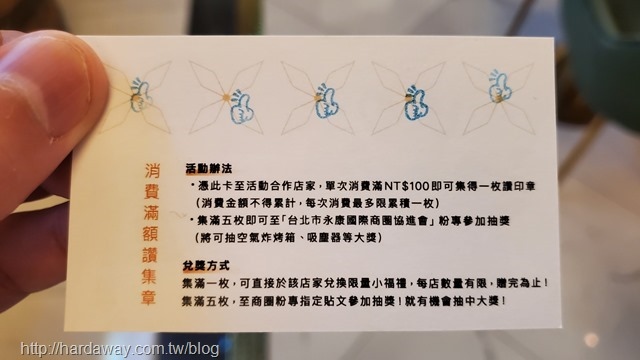 消費滿額讚集章
活動辦法
・憑此卡至活動合作店家，單次消費滿NT$100即可集得一枚讚印章
（消費金額不得累計，每次消費最多限累積一枚）
・集滿五枚即可至「台北市永康國際商圈協進會」粉專參加抽獎
（將可抽空氣炸烤箱、吸塵器等大獎）
兌獎方式
集滿一枚，可直接於該店家兌換限量小福禮，每店數量有限，贈完為止！
集滿五枚，至商圈粉專指定貼文參加抽獎！就有機會抽中大獎！
http://hardaway.com.tw/blog